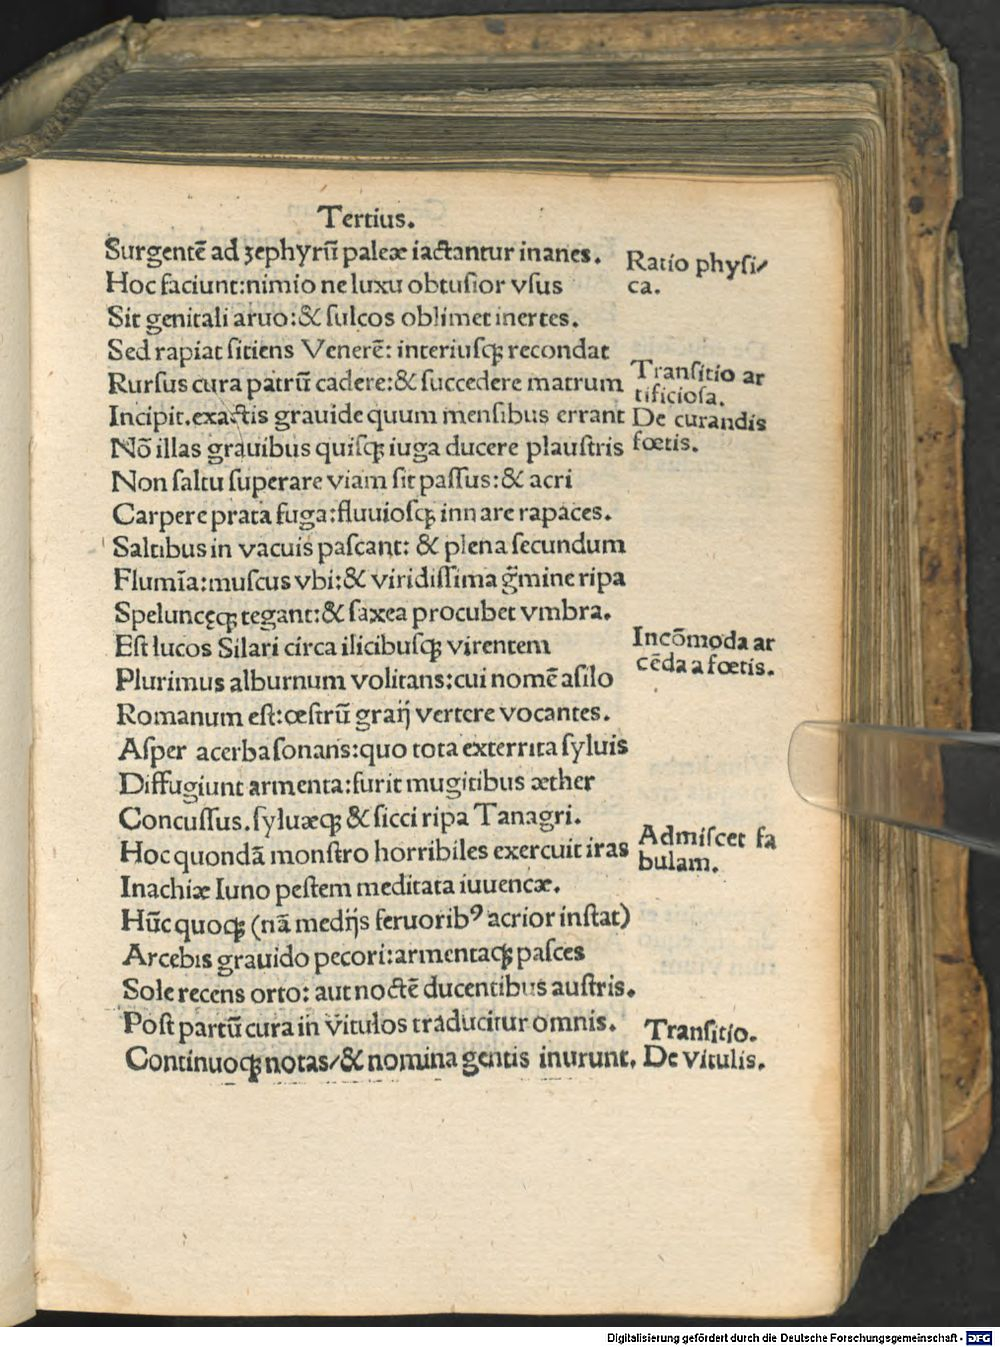 Tertius.
Surgentē ad zephyrū paleæ iactantur inanes.
Hoc faciunt:nimio ne luxu obtusior vsus
Sit genitali aruo:& sulcos oblimet inertes.
Sed rapiat sitiens Venerē: interiusqꝫ recondat
Rursus cura patrū cadere:& succedere matrum
Incipit.exactis grauide quum mensibus errant
Nō illas grauibus quisqꝫ iuga ducere plaustris
Non saltu superare viam sit passus:& acri
Carpere prata fuga:fluuiosqꝫ innare rapaces.
Saltibus in vacuis pascant: & plena secundum
Flumīa:muscus vbi:& viridissima g̃mine ripa
Speluncęqꝫ tegant:& saxea procubet vmbra.
Est lucos Silari circa ilicibusqꝫ virentem
Plurimus alburnum volitans:cui nomē asilo
Romanum est:œstrū graij vertere vocantes.
Asper acerba sonans:quo tota exterrita syluis
Diffugiunt armenta:furit mugitibus æther
Concussus.syluæqꝫ & sicci ripa Tanagri.
Hoc quondā monstro horribiles exercuit iras
Inachiæ Iuno pestem meditata iuuencæ.
Hūc quoqꝫ (nā medijs feruoribꝰ acrior instat)
Arcebis grauido pecori:armentaqꝫ pasces
Sole recens orto: aut noctē ducentibus austris.
Post partū cura in vitulos traducitur omnis.
Continuoqꝫ notas/& nomina gentis inurunt.
Ratio physi/
ca.
Transitio ar
tificiosa.
De curandis
fœtis.
Incōmoda ar
cēda a fœtis.
Admiscet fa
bulam.
Transitio.
De vitulis.
Digitalisierung gefördert durch die Deutsche Forschungsgemeinschaft - DFG